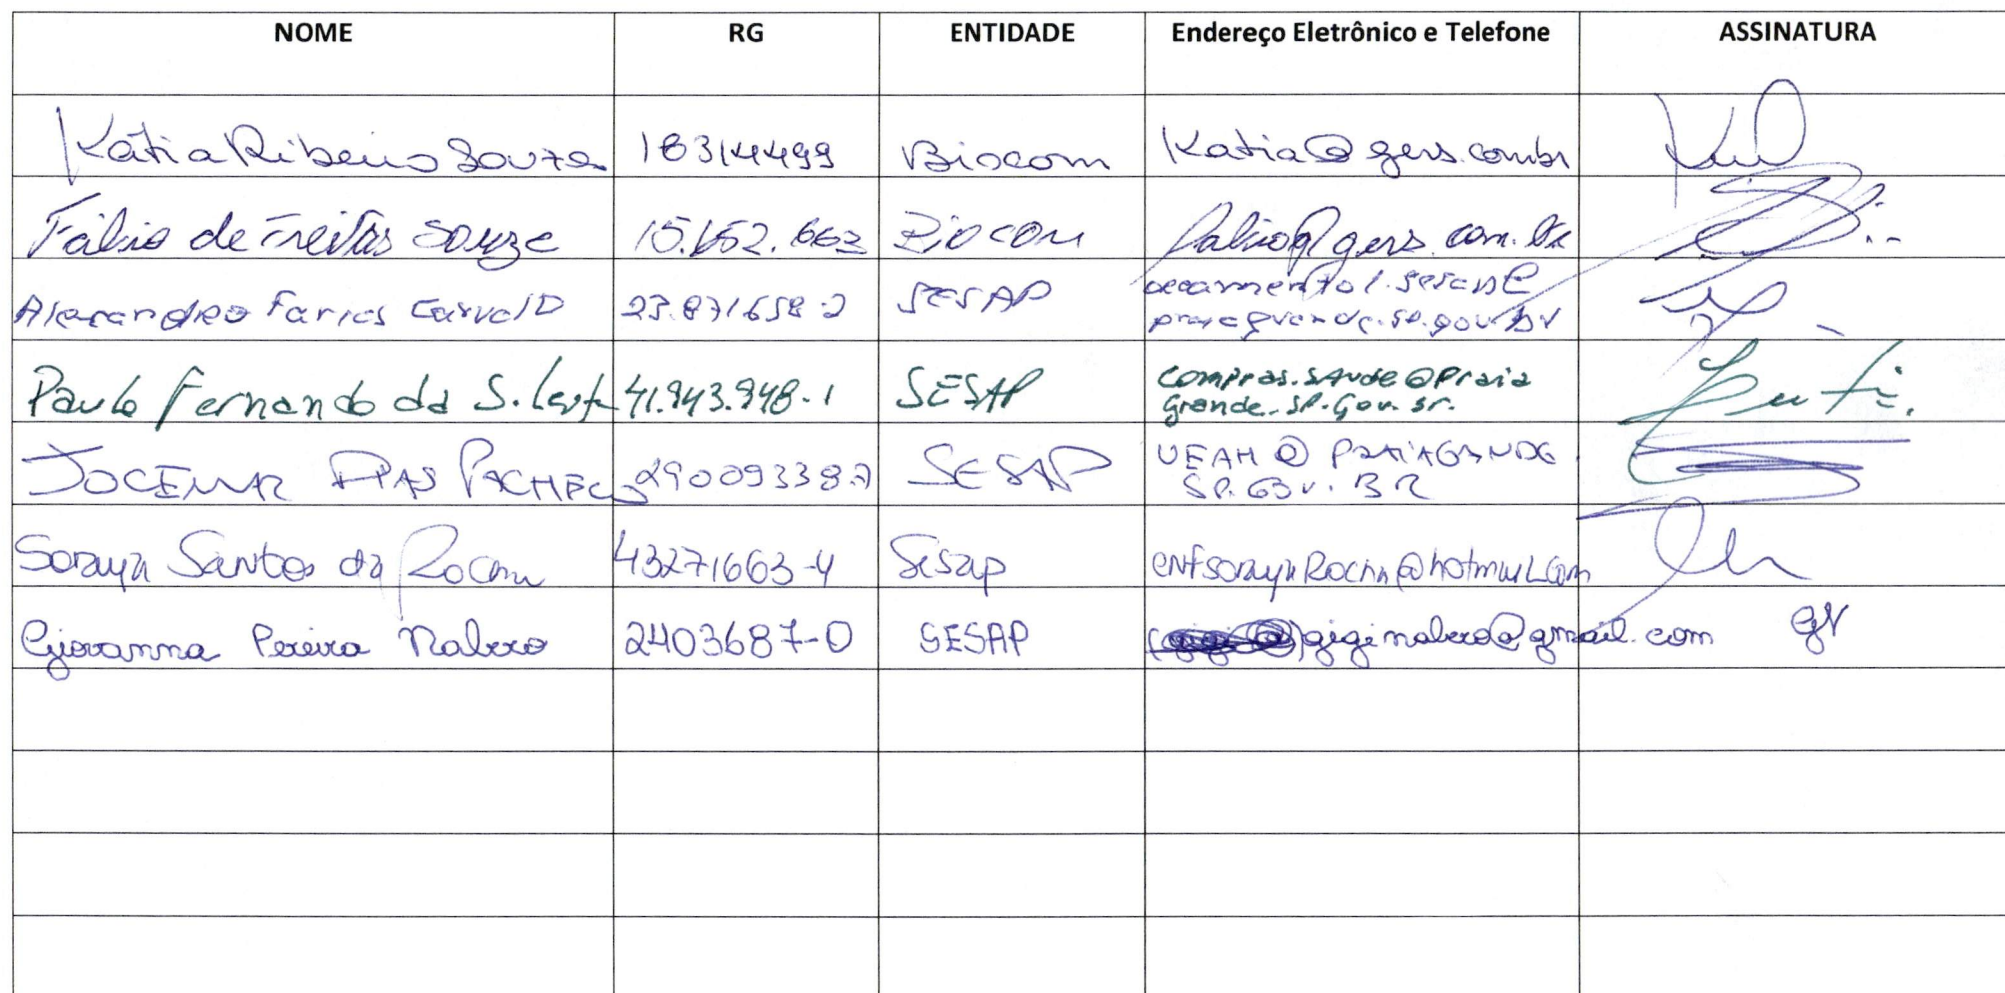 NOME RG ENTIDADE Endereço Eletrônico e Telefone ASSINATURA
Kátia Ribeiro Souza 18314499 Biocom Katia@gers.combr
Fábio de Freitas Souza 15.152.663 Biocom fabio@gers.com.br
Alexandro Farias Carvalo 23.871658-2 SESAP
praiagrande.sp.gov.br
Paulo Fernando da S. 41.943.948-1 SESAP Compras.saude@Praia
Grande.SP.Gov.Br.
JOCEMAR DIAS PACHECO 29009338-7 SESAP UEAH@PRAIAGRANDE
SP.GOV.BR
Soraya Santos da Rocha 43271663-4 Sesap enfsorayaRocha@hotmail.com
Giovanna Pereira Nabzo 2403687-0 SESAP @gmail.com GN